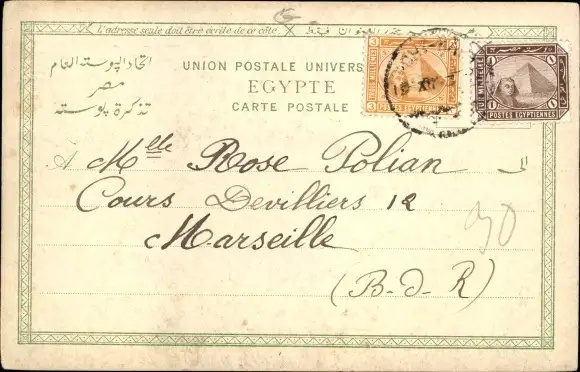 L'adresse seule doit être écrite de ce côté
اتحاد البوسته العام
مصر
تذكرة بوسته
UNION POSTALE UNIVERS
EGYPTE
CARTE POSTALE
3 3
POSTES EGYPTIENNES
1 1
POSTES EGYPTIENNES
A Mlle Rose Polian
Cours Devilliers 12
Marseille
(B-d-R)
90